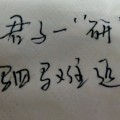 君子一“研
驷马难追